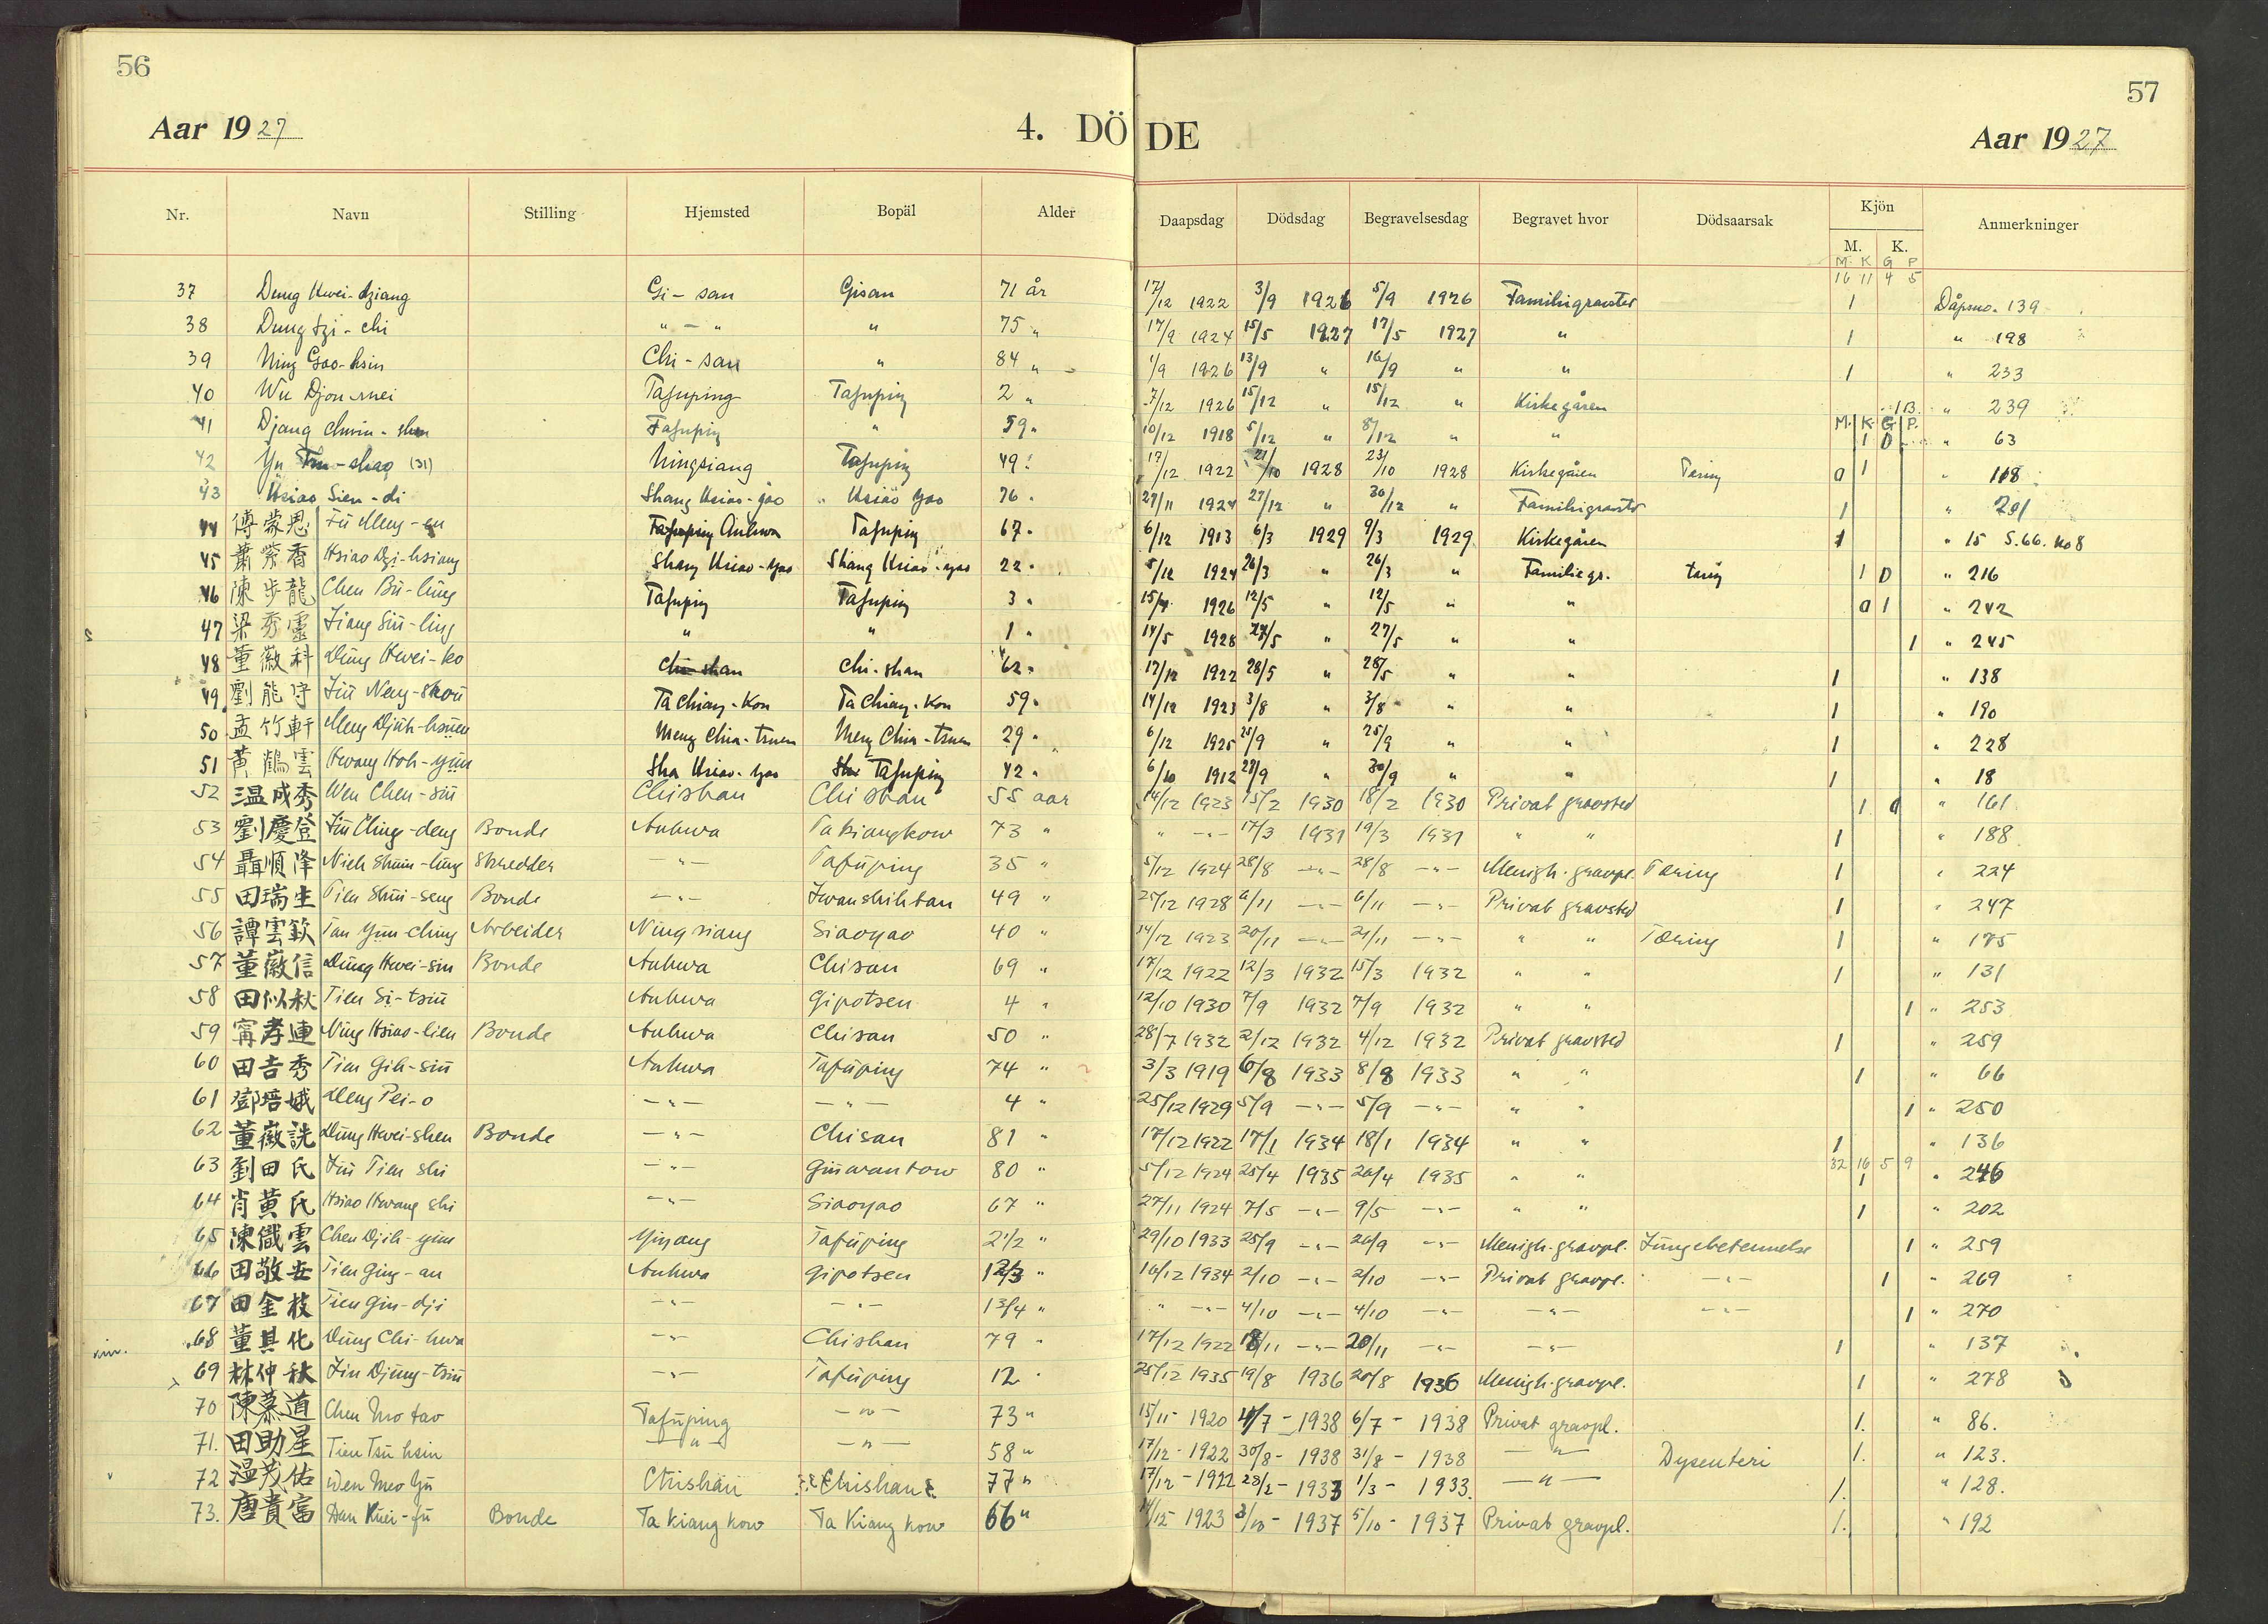 56
57
Aar 1927
4. DÖDE
Aar 1927
Nr. Navn Stilling Hjemsted Bopäl Alder Daapsdag Dödsdag Begravelsesdag Begravet hvor Dödsaarsak Kjön Anmerkninger
M. K.
M. K G P
16 11 4 5
37 Dung Hwei-dziang Gi-san Gisan 71 år 17/12 1922 3/9 1926 5/9 1926 Familiegravsted 1 Dåpsno. 139
38 Dung tzi-chi " - " " 75 " 17/9 1924 15/5 1927 17/5 1927 " 1 " 198
39 Ning Gao-hsin Chi-san " 84 " 1/9 1926 13/9 " 16/9 " " 1 " 233
40 Wu Djou-mei Tafuping Tafuping 2 " 7/12 1926 15/12 " 15/12 " Kirkegåren 1 B. " 239
M. K. G. P.
41 Djang Chuin-shen Tafuping " 59 " 10/12 1918 5/12 " 8/12 " " 1 0 " 63
42 Yu Tsu-shao (31) Ningsiang Tafuping 49 " 17/12 1922 21/10 1928 23/10 1928 Kirkegåren Tæring 0 1 " 118
43 Hsiao Sien-di Shang Hsiao-yao " Hsiao yao 76 " 27/11 1924 27/12 " 30/12 " Familiegravsted 1 " 201
44 傅蒙恩 Fu Meng-en Tafuping Anhwa Tafuping 67 " 6/12 1913 6/3 1929 9/3 1929 Kirkegåren 1 " 15 S.66. No 8
45 蕭紫香 Hsiao Dzi-hsiang Shang Hsiao-yao Shang Hsiao-yao 22 " 5/12 1924 26/3 " 26/3 " Familiegr. tæring 1 0 " 216
46 陳步龍 Chen Bu-lung Tafuping Tafuping 3 " 15/4 1926 12/5 " 12/5 " " 0 1 " 242
47 梁秀靈 Liang Siu-ling " " 1 " 14/5 1928 27/5 " 27/5 " " 1 " 245
48 董徽科 Dung Hwei-ko Chi-shan Chi-shan 62 " 17/12 1922 28/5 " 28/5 " " 1 " 138
49 劉能守 Liu Neng-shou Ta Chiang-Kou Ta Chiang-Kou 59 " 14/12 1923 3/8 " 3/8 " " 1 " 190
50 孟竹軒 Meng Djuh-hsüen Meng Chia-tsuen Meng Chia-tsuen 29 " 6/12 1925 25/9 " 25/9 " " 1 " 228
51 黃鶴雲 Hwang Hoh-yün Sha Hsiao-yao Tafuping 42 " 6/10 1912 28/9 " 30/9 " " 1 " 18
52 溫成秀 Wen Chen-siu Chishan Chi shan 55 aar 14/12 1923 15/2 1930 18/2 1930 Privat gravsted 1 0 " 161
53 劉慶登 Liu Ching-deng Bonde Anhwa Takiangkow 73 " " -"- 17/3 1931 19/3 1931 " " 1 " 188
54 聶順隆 Nieh Shun-lung Skredder -"- Tafuping 35 " 5/12 1924 28/8 -"- 28/8 -"- Menigh. gravpl. Tæring 1 " 224
55 田瑞生 Tien Shui-seng Bonde -"- Hwanshihtan 49 " 25/12 1928 6/11 -"- 6/11 -"- Privat gravsted 1 " 247
56 譚雲欽 Tan Yün-ching Arbeider Ningsiang Siaoyao 40 " 14/12 1923 20/11 -"- 21/11 -"- " " Tæring 1 " 175
57 董徽信 Dung Hwei-sin Bonde Anhwa Chisan 69 " 17/12 1922 12/3 1932 15/3 1932 " " 1 " 131
58 田似秋 Tien Si-tsiu Anhwa Gipotsen 4 " 12/10 1930 7/9 1932 7/9 1932 " " 1 " 253
59 甯孝連 Ning Hsiao-lien Bonde Anhwa Chisan 50 " 28/7 1932 2/12 1932 4/12 1932 Privat gravsted 1 " 259
60 田吉秀 Tien Gih-siu Anhwa Tafuping 74 " 3/3 1919 6/8 1933 8/8 1933 " " 1 " 66
61 鄧培娥 Deng Pei-o -"- -"- 4 " 25/12 1929 5/9 -"- 5/9 -"- " " 1 " 250
62 董徽詵 Dung Hwei-shen Bonde -"- Chisan 81 " 17/12 1922 17/1 1934 18/1 1934 " " 1 " 136
32 16 5 9
63 劉田氏 Liu Tien shi -"- Giuwantow 80 " 5/12 1924 25/4 1935 26/4 1935 " " 1 " 246
64 肖黃氏 Hsiao Hwang shi -"- Siaoyao 67 " 27/11 1924 7/5 -"- 9/5 -"- " " 1 " 202
65 陳儎雲 Chen Djih-yün Yiyang Tafuping 2 1/2 " 29/10 1933 25/9 -"- 26/9 -"- Menigh. gravpl. Lungebetennelse 1 " 259
66 田敬安 Tien Ging-an Anhwa Gipotsen 1 2/3 " 16/12 1934 2/10 -"- 2/10 -"- Privat gravpl. -"- 1 " 269
67 田金枝 Tien Gin-dji -"- -"- 1 3/4 " " -"- 4/10 -"- 4/10 -"- -"- -"- 1 " 270
68 董其化 Dung Chi-hwa -"- Chishan 79 " 17/12 1922 18/11 -"- 20/11 -"- -"- 1 " 137
69 林仲秋 Lin Djung-tsiu -"- Tafuping 12 " 25/12 1935 19/8 1936 20/8 1936 Menigh. gravpl. 1 " 278
70 陳慕道 Chen Mo tao Tafuping -"- 73 " 15/11- 1920 4/7- 1938 6/7- 1938 Privat gravpl. 1. " 86.
71. 田助星 Tien Tsu hsin -"- -"- 58 " 17/12- 1922 30/8- 1938 31/8- 1938 -"- Dysenteri 1. " 123.
72 温茂佑 Wen Mео Yu Chishan Chishan 77 " 17/12- 1922 28/2- 1933 1/3- 1933. -"- 1. " 128.
73. 唐貴富 Dan Kuei-fu Bonde Ta kiang kow Ta Kiang kow 66 " 14/12- 1923 3/10- 1937 5/10- 1937 Privat gravpl. 1. " 192